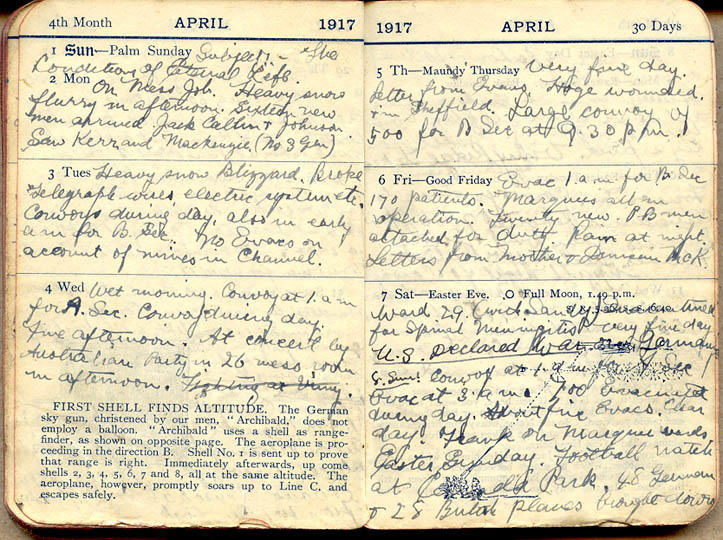 4th Month APRIL 1917
1 Sun—Palm Sunday Subject – The
Condition of Eternal Life.
2 Mon On Mess Job. Heavy snow
flurry in afternoon. Sixteen new
men arrived. Jack Callin & Johnson.
Saw Kerr and Mackenzie (No 3 Gen)
3 Tues Heavy snow Blizzard. Broke
telegraph wires, electric system etc.
Convoys during day, also in early
a.m for B. Sec. No Evacs on
account of mines in Channel.
4 Wed Wet morning. Convoy at 1. a.m
for A. Sec. Convoy during day.
Fine afternoon. At concert by
Australian Party in 26 mess room
in afternoon. Fighting at Vimy.
FIRST SHELL FINDS ALTITUDE. The German
sky gun, christened by our men, "Archibald," does not
employ a balloon. "Archibald" uses a shell as range-
finder, as shown on opposite page. The aeroplane is pro-
ceeding in the direction B. Shell No. 1 is sent up to prove
that range is right. Immediately afterwards, up come
shells 2, 3, 4, 5, 6, 7 and 8, all at the same altitude. The
aeroplane, however, promptly soars up to Line C. and
escapes safely.
1917 APRIL 30 Days
5 Th—Maundy Thursday Very fine day.
Letter from Evans. Hoge wounded.
in Sheffield. Large convoy of
500 for B Sec at 9.30 p.m.
6 Fri—Good Friday Evac 1 a.m for B. Sec
170 patients. Marquees all in
operation. Twenty new P.B men
attached for duty. Rain at night.
Letters from Mother & McK.
7 Sat—Easter Eve. Full Moon, 1.49 p.m.
Ward 29.
for Spinal Meningitis. Very fine day
U.S. Declared War on Germany
8 Sun: Convoy at 1 a.m for Sec
Evac at 3 a.m. 700 Evacuated
during day. About five Evacs. Clear
day. Frank on Marquee wards.
Easter Sunday. Football match
at Park. 48 German
& 28 British planes brought down